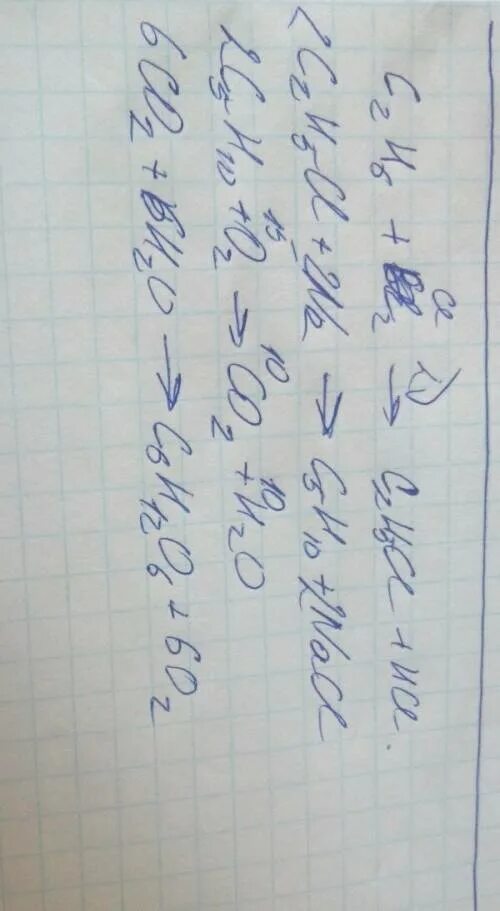 C₂H₆ + Cl₂ → C₂H₅Cl + HCl.
2C₂H₅Cl + 2Na → C₅H₁₀ + 2NaCl
2C₅H₁₀ + 15O₂ → 10CO₂ + 10H₂O
6CO₂ + 6H₂O → C₆H₁₂O₆ + 6O₂